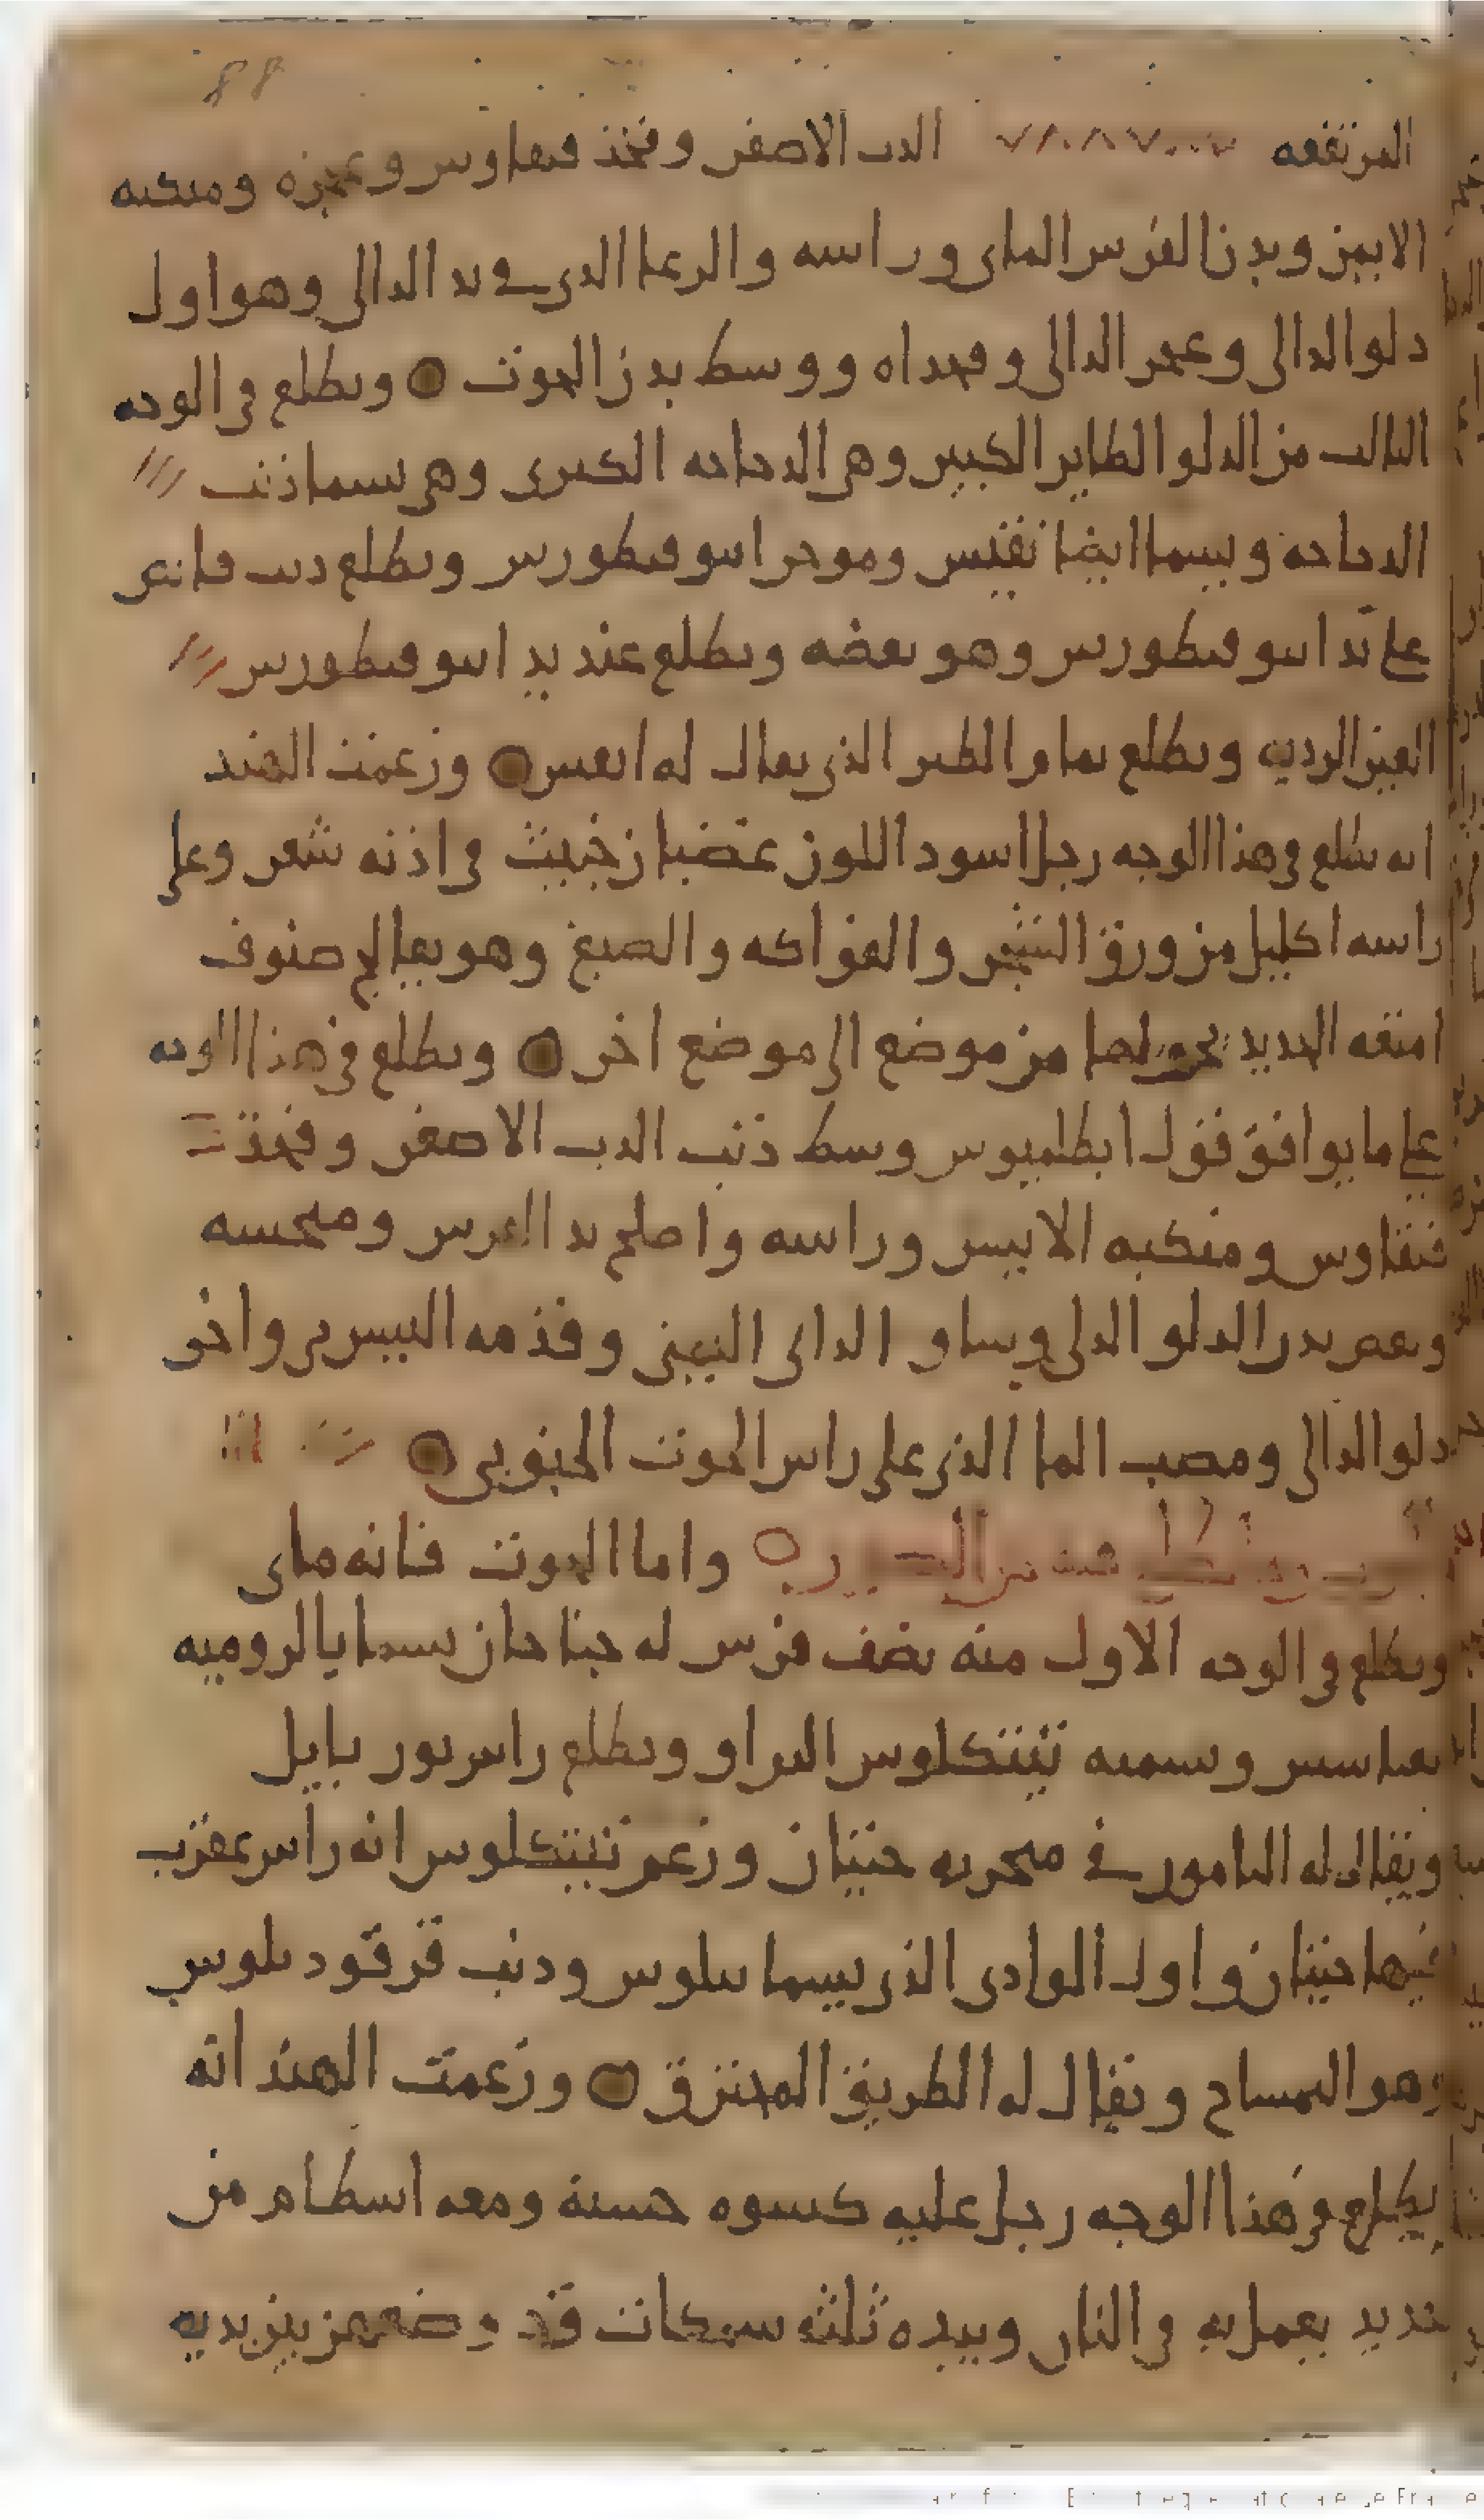 88
المرتفعه الدب الاصغر وفخذ قيقاوس وعجزه ومنكبه
الايمن وبدن الفرس الماى وراسه والرعا الدى فى يد الدالى وهو اول
دلو الدالى وعجز الدالى وفخذاه ووسط بدن الحوت ويطلع فى الوجه
الثالث من الدلو الطاير الكبير وهى الدجاجه الكبرى وهى تسما ذنب
الدجاجه ويسما ايضا نقنيس وموخر ايبوقنطورس ويطلع
على يد ايبوقنطورس وهو يعضه ويطلع عند يد ايبوقنطورس
العين الرديه ويطلع تمام الطير الذى يقال له وزعمت الهند
انه يطلع فى هذا الوجه رجل اسود اللون غضبان خبيث فى اذنه شعر وعلى
راسه اكليل من ورق الشجر والفواكه والصمغ وهو يعالج صنوف
امتعه الحديد يحولها من موضع الى موضع اخر ويطلع فى هذا الوجه
على ما يوافق قول ابطلميوس وسط ذنب الدب الاصغر وفخذ
قيقاوس ومنكبه الايسر وراسه واصل يد الفرس
وبعض بدن الدلو الدالى وساق الدالى اليمنى وقدمه اليسرى واخر
دلو الدالى ومصب الما الذى على راس الحوت الجنوبى
واما الحوت فانه ماى
ويطلع فى الوجه الاول منه نصف فرس له جناحان يسما بالروميه
وسميه تينكلوس ويطلع راس ثور بايل
ويقال له اليامور فى منخريه حيتان وزعم تينكلوس انه راس عقرب
فيها حيتان واول الوادى الذى يسما نيلوس وذنب قرقوديلوس
وهو التمساح ويقال له الطريق المحترق وزعمت الهند انه
يطلع فى هذا الوجه رجل عليه كسوه حسنة ومعه اسطام من
حديد يعمل به فى النار وبيده ثلثه سمكات قد وضعهن بين يديه